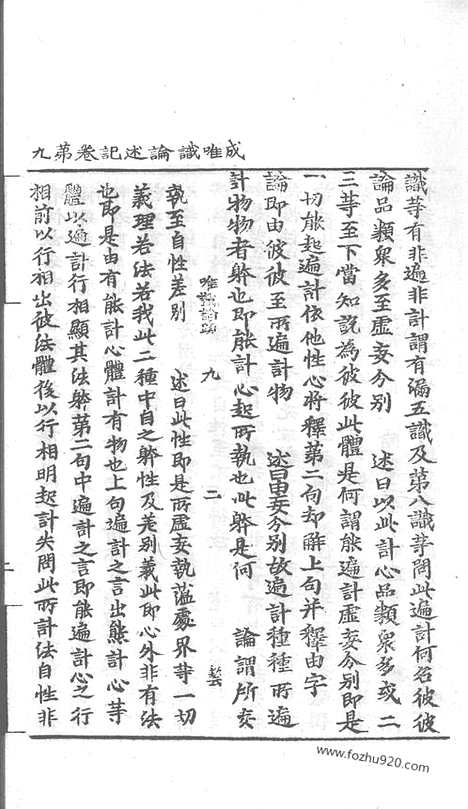 成唯識論述記卷第九
識等有非遍非計謂有漏五識及第八識等問此遍計何名彼彼
論品類衆多至虛妄分別 述曰以此計心品類衆多或二
三等至下當知説為彼彼此體是何謂能遍計虛妄分別即是
一切能起遍計依他性心將釋第二句却解上句并釋由字
論即由彼彼至所遍計物 述曰由妄分別故遍計種種所遍
計物物者躰也即能計心起所執也此躰是何 論謂所妄
唯識論疏 九 二
執至自性差別 述曰此性即是所虛妄執蘊處界等一切
義理若法若我此二種中自之躰性及差別義此即心外非有法
也即是由有能計心體計有物也上句遍計之言出能計心等
體以遍計行相顯其法躰第二句中遍計之言即能遍計心之行
相前以行相出彼法體後以行相明起計失問此所計法自性非
www.fozhu920.com